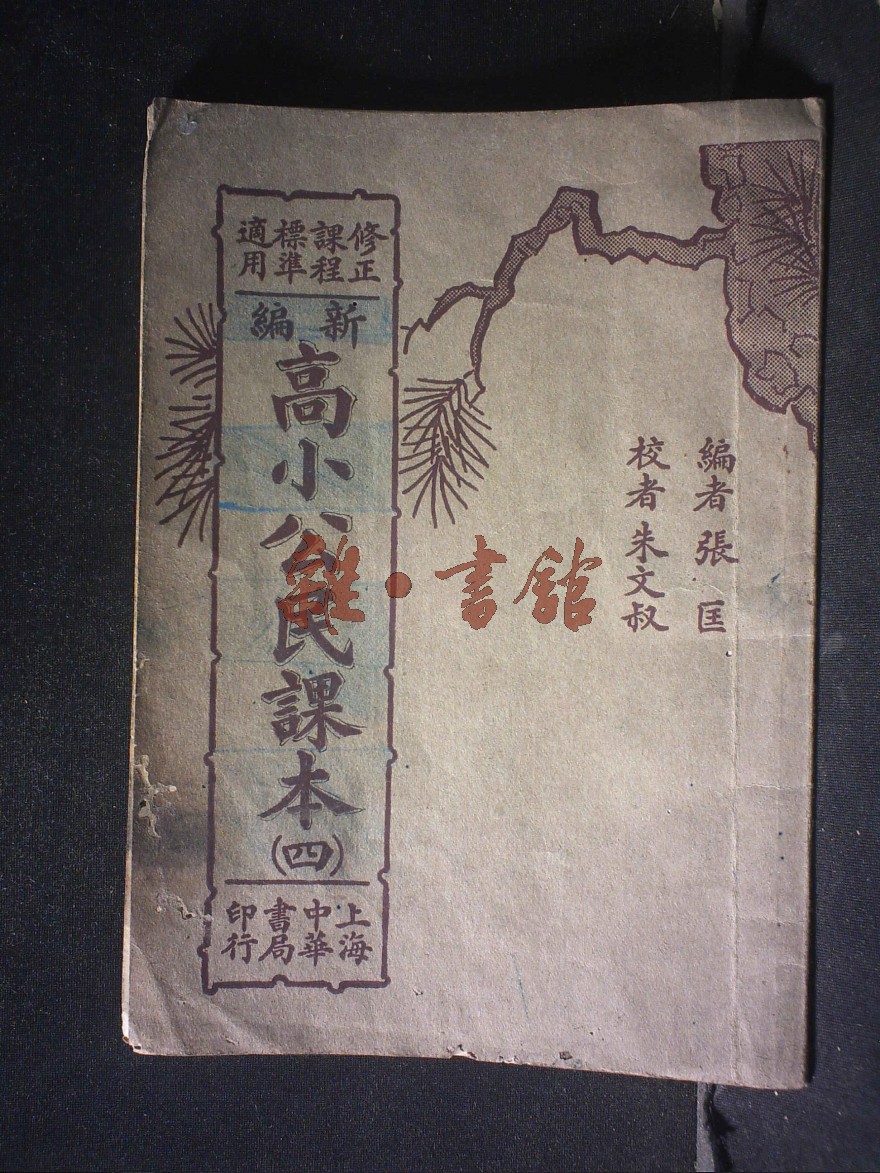 修正課程標準適用
新編
高小公民課本
(四)
上海中華書局印行
編者 張匡
校者 朱文叔
雜·書館